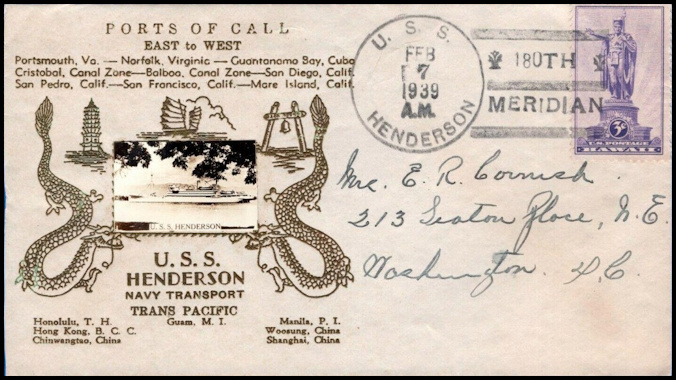 PORTS OF CALL
EAST to WEST
Portsmouth, Va. — Norfolk, Virginia — Guantanamo Bay, Cuba
Cristobal, Canal Zone—Balboa, Canal Zone—San Diego, Calif.
San Pedro, Calif.—San Francisco, Calif.—Mare Island, Calif.
U. S. S. HENDERSON
U. S. S.
HENDERSON
NAVY TRANSPORT
TRANS PACIFIC
Honolulu, T. H. Guam, M. I. Manila, P. I.
Hong Kong, B. C. C. Woosung, China
Chinwangtao, China Shanghai, China
U. S. S.
FEB
7
1939
A.M.
HENDERSON
180TH
MERIDIAN
3¢
U.S. POSTAGE
HAWAII
Mrs. E. R. Cornish.
213 Seaton Place, N.E.
Washington. D.C.